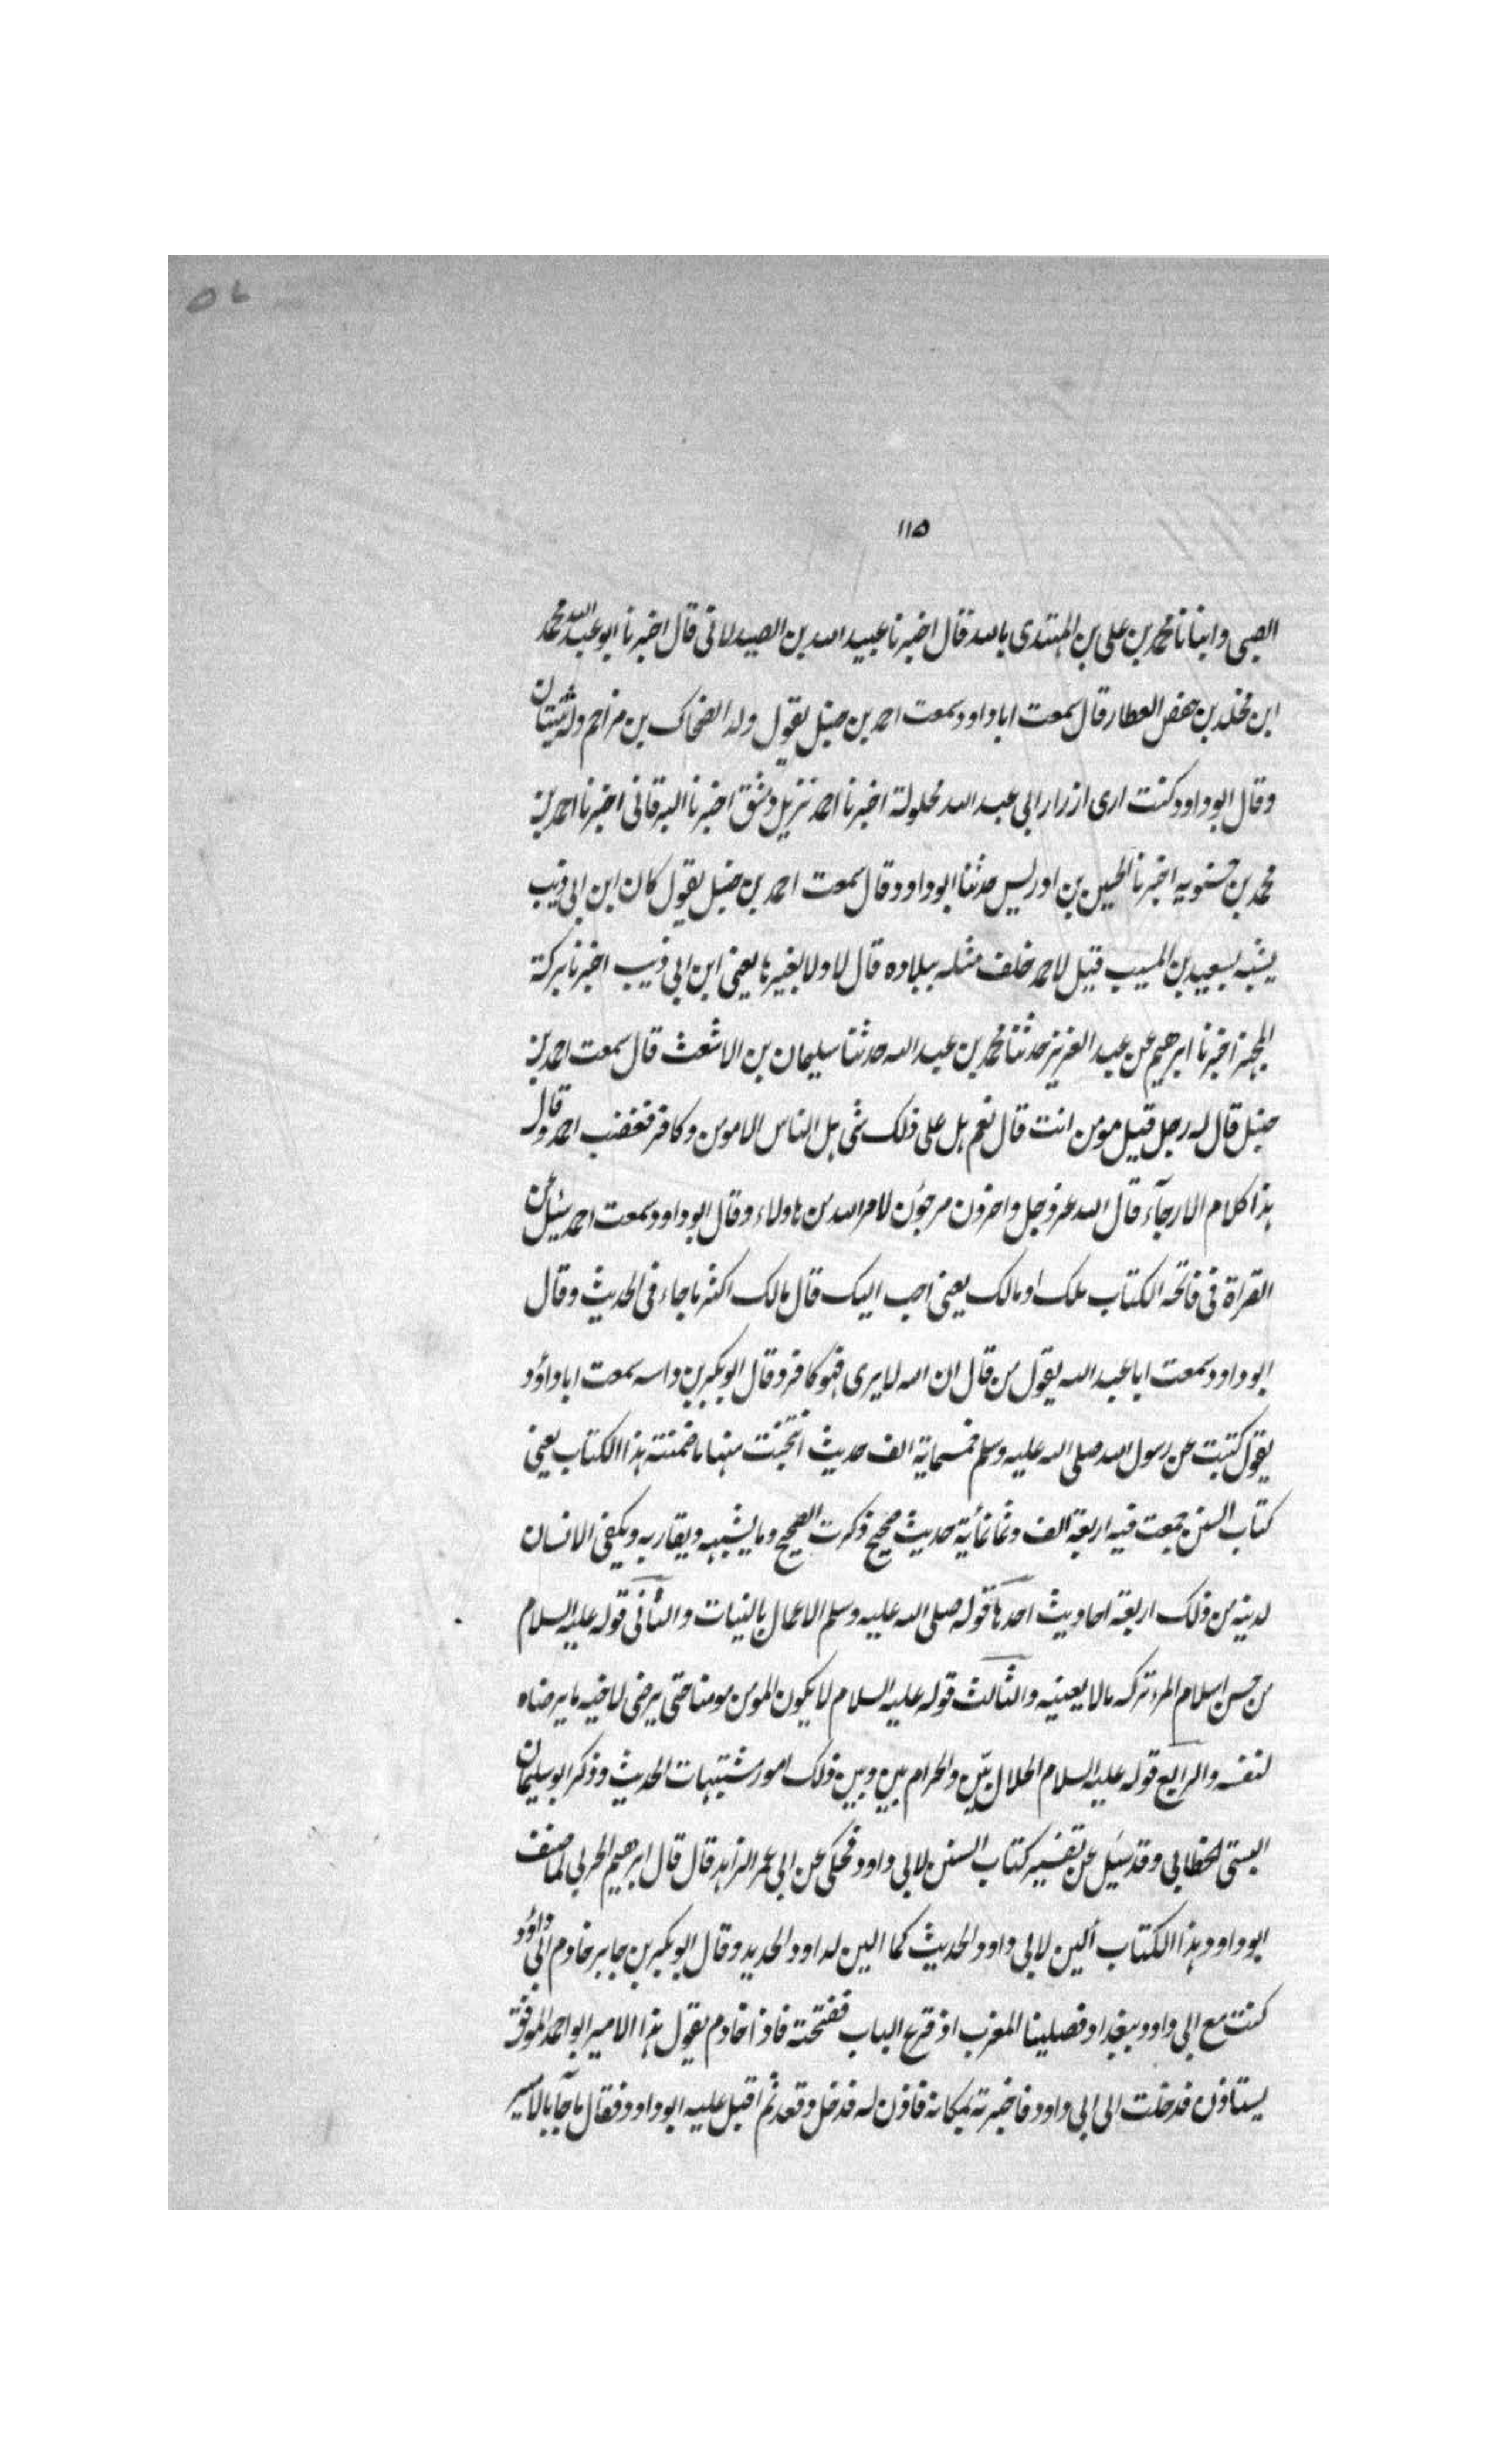 ۱۱۵
الصبی وانبانا محمد بن علی بن المهتدی بالله قال اخبرنا عبید الله بن الصیدلانی قال اخبرنا ابو عبد الله محمد
ابن مخلد بن حفص العطار قال سمعت ابا داود سمعت احمد بن حنبل یقول ولد الضحاک بن مزاحم وله ثنیتان
وقال ابو داود کنت اری ازرار ابی عبد الله محلولة اخبرنا احمد نزیل دمشق اخبرنا البرقانی اخبرنا احمد بن
محمد بن حسنویه اخبرنا الحسین بن ادریس حدثنا ابو داود قال سمعت احمد بن حنبل یقول کان ابن ابی ذیب
یشبه بسعید بن المسیب قیل لاحمد خلف مثله ببلاده قال لا ولا بغیرها یعنی ابن ابی ذیب اخبرنا برکة
المجبر اخبرنا ابرهیم عن عبد العزیز حدثنا محمد بن عبد الله حدثنا سلیمان بن الاشعث قال سمعت احمد بن
حنبل قال له رجل قیل مومن انت قال نعم هل علی ذلک شی هل الناس الا مومن وکافر فغضب احمد وقال
هذا کلام الارجآء قال الله عز وجل واخرون مرجون لامر الله من هاولاء وقال ابو داود سمعت احمد سئیل عن
القراة فی فاتحه الکتاب ملک او مالک یعنی احب الیک قال مالک اکثر ما جاء فی الحدیث وقال
ابو داود سمعت ابا عبد الله یقول من قال ان الله لا یری فهو کافر وقال ابو بکر بن داسه سمعت ابا داؤد
یقول کتبت عن رسول الله صلی الله علیه وسلم خمسمایة الف حدیث انتخبت منها ما ضمنته هذا الکتاب یعنی
کتاب السنن جمعت فیه اربعة الف وثمانمائیة حدیث صحیح ذکرت الصحیح وما یشبهه ویقاربه ویکفی الانسان
لدینه من ذلک اربعة احادیث احدها قوله صلی الله علیه وسلم الاعمال بالنیات والثانی قوله علیه السلام
من حسن اسلام المرء ترکه ما لا یعنیه والثالث قوله علیه السلام لا یکون المومن مومنا حتی یرضی لاخیه ما یرضاه
لنفسه والرابع قوله علیه السلام الحلال بیّن والحرام بین وبین ذلک امور مشتبهات الحدیث وذکر ابو سلیمان
البستی الخطابی وقد سئیل عن تفسیر کتاب السنن لابی داود فحکی عن ابی عمر الزاهد قال قال ابرهیم الحربی لما صنف
ابو داود هذا الکتاب ألین لابی داود الحدیث کما الین لداود الحدید وقال ابو بکر بن جابر خادم ابی داؤد
کنت مع ابی داود ببغداد فصلینا المغرب اذ قرع الباب ففتحته فاذا خادم یقول هذا الامیر ابو احمد الموفق
یستاذن فدخلت الی ابی داود فاخبرته بمکانه فاذن له فدخل وقعد ثم اقبل علیه ابو داود فقال ما جآء بالامیر